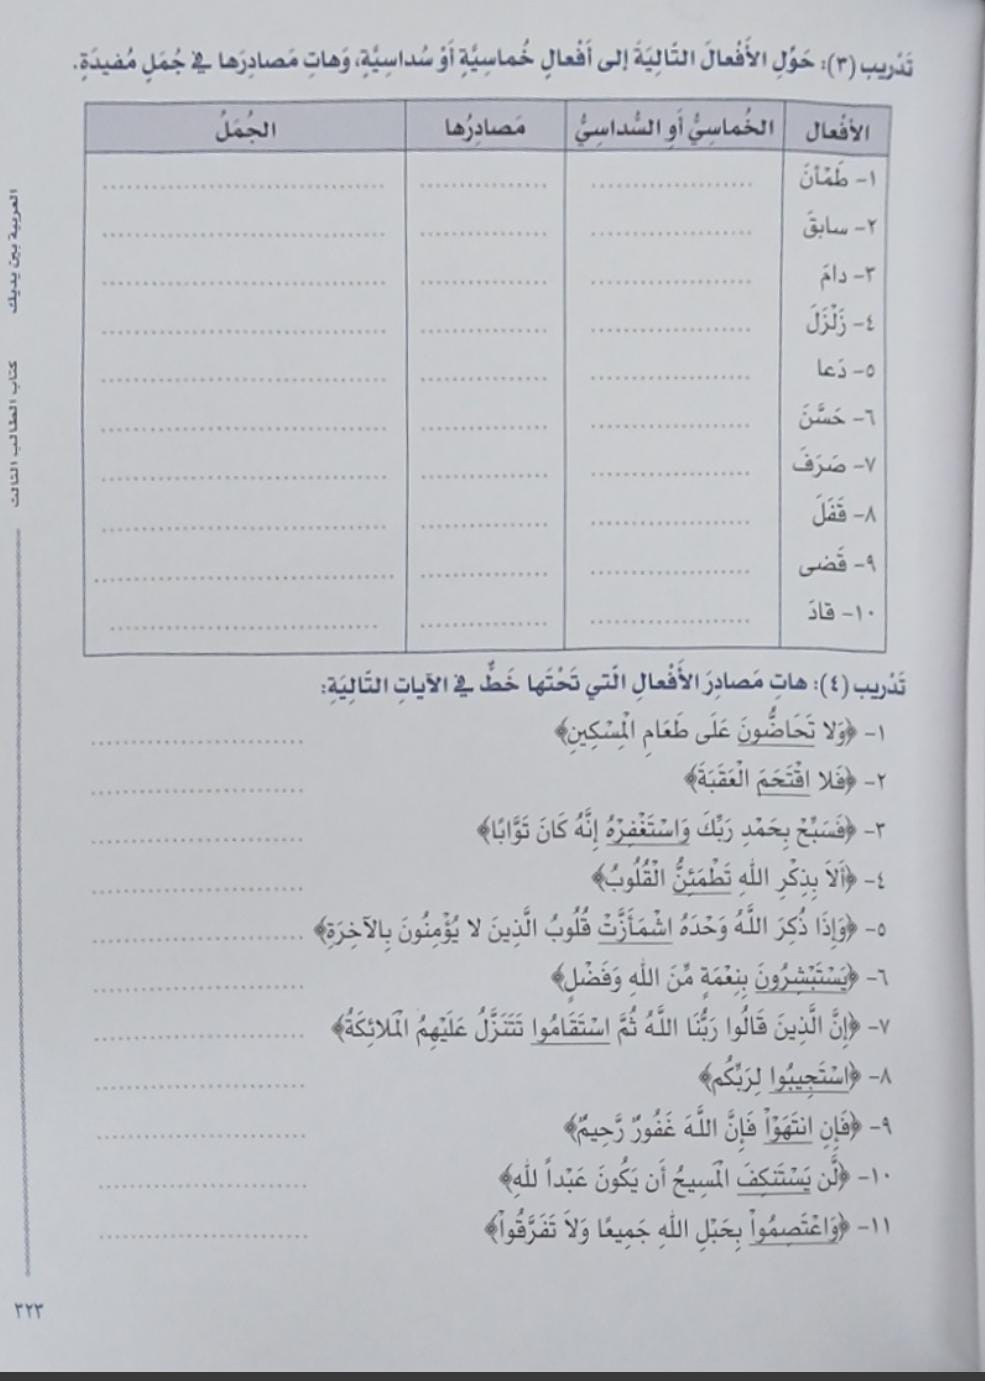 تَدْريب (٣): حَوِّلِ الأَفْعالَ التّالِيَةَ إلى أَفْعالٍ خُماسِيَّةٍ أَوْ سُداسِيَّةٍ، وَهاتِ مَصادِرَها في جُمَلٍ مُفيدَةٍ.
الأفْعال الخُماسِيُّ أَوِ السُّداسِيُّ مَصادِرُها الجُمَلُ
١- طَمْأَنَ
٢- سابقَ
٣- دامَ
٤- زَلْزَلَ
٥- دَعا
٦- حَسَّنَ
٧- صَرَفَ
٨- قَفَلَ
٩- قَضى
١٠- قادَ
تَدْريب (٤): هاتِ مَصادِرَ الأَفْعالِ الّتي تَحْتَها خَطٌّ في الآياتِ التّالِيَةِ:
١- ﴿وَلا تَحَاضُّونَ عَلَى طَعَامِ الْمِسْكِينِ﴾
٢- ﴿فَلا اقْتَحَمَ الْعَقَبَةَ﴾
٣- ﴿فَسَبِّحْ بِحَمْدِ رَبِّكَ وَاسْتَغْفِرْهُ إِنَّهُ كَانَ تَوَّابًا﴾
٤- ﴿أَلاَ بِذِكْرِ اللهِ تَطْمَئِنُّ الْقُلُوبُ﴾
٥- ﴿وَإِذَا ذُكِرَ اللَّهُ وَحْدَهُ اشْمَأَزَّتْ قُلُوبُ الَّذِينَ لا يُؤْمِنُونَ بِالآخِرَةِ﴾
٦- ﴿يَسْتَبْشِرُونَ بِنِعْمَةٍ مِّنَ اللهِ وَفَضْلٍ﴾
٧- ﴿إِنَّ الَّذِينَ قَالُوا رَبُّنَا اللَّهُ ثُمَّ اسْتَقَامُوا تَتَنَزَّلُ عَلَيْهِمُ الْمَلائِكَةُ﴾
٨- ﴿اسْتَجِيبُوا لِرَبِّكُم﴾
٩- ﴿فَإِنِ انتَهَوْاْ فَإِنَّ اللَّهَ غَفُورٌ رَّحِيمٌ﴾
١٠- ﴿لَّن يَسْتَنكِفَ الْمَسِيحُ أَن يَكُونَ عَبْداً للهِ﴾
١١- ﴿وَاعْتَصِمُواْ بِحَبْلِ اللهِ جَمِيعًا وَلاَ تَفَرَّقُواْ﴾
العربية بين يديك
كتاب الطالب الثالث
٣٢٣